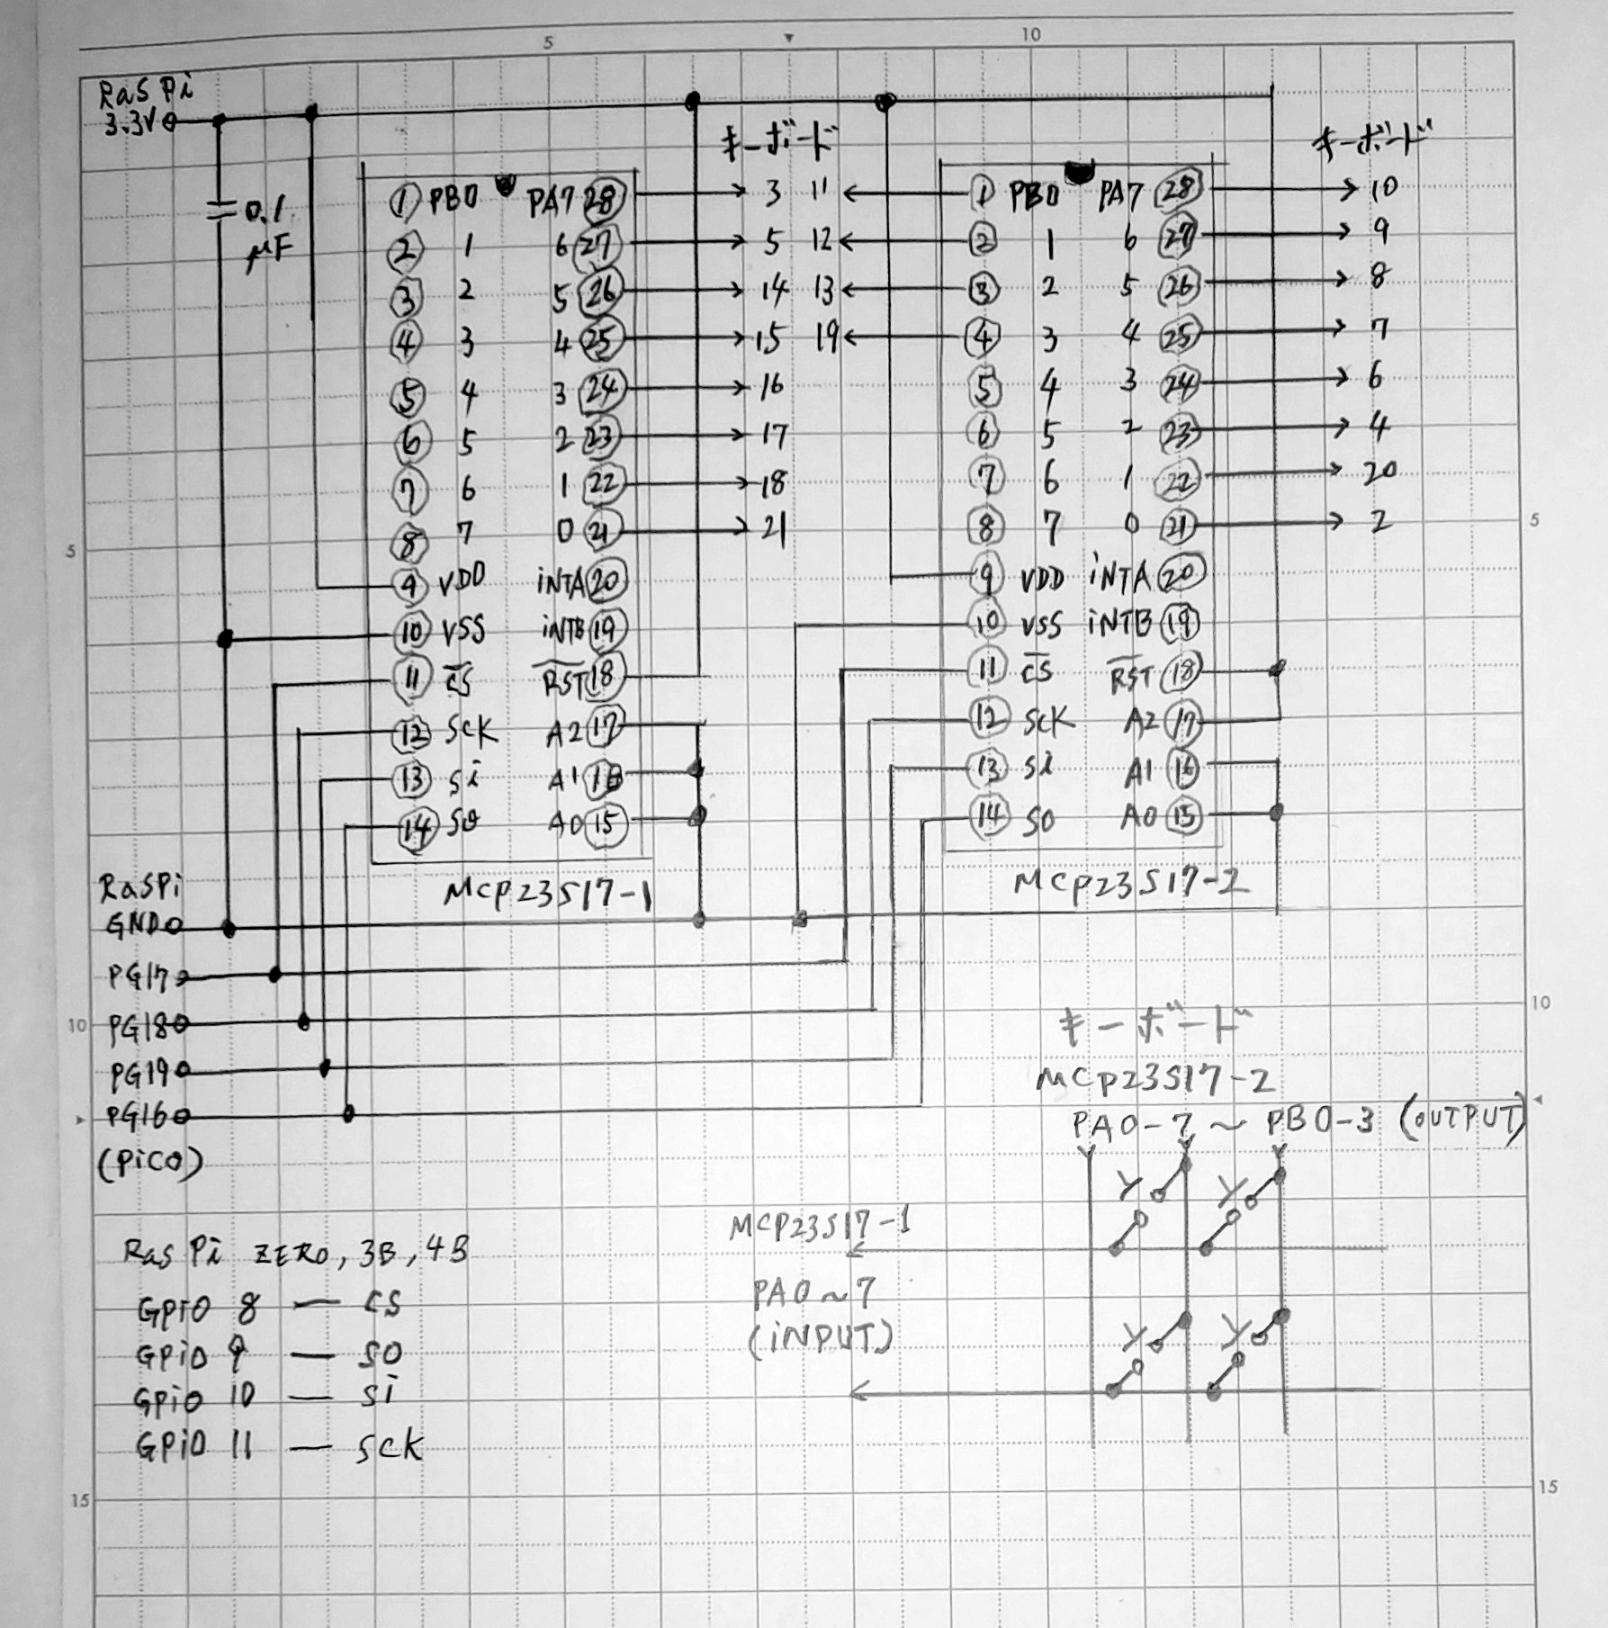 5 10
RasPi
3.3V
0.1
μF
キーボード
キーボード
① PB0 PA7 ㉘ 3 11 ① PB0 PA7 ㉘ 10
② 1 6 ㉗ 5 12 ② 1 6 ㉗ 9
③ 2 5 ㉖ 14 13 ③ 2 5 ㉖ 8
④ 3 4 ㉕ 15 19 ④ 3 4 ㉕ 7
⑤ 4 3 ㉔ 16 ⑤ 4 3 ㉔ 6
⑥ 5 2 ㉓ 17 ⑥ 5 2 ㉓ 4
⑦ 6 1 ㉒ 18 ⑦ 6 1 ㉒ 20
⑧ 7 0 ㉑ 21 ⑧ 7 0 ㉑ 2
5 5
⑨ VDD iNTA ⑳ ⑨ VDD iNTA ⑳
⑩ VSS iNTB ⑲ ⑩ VSS iNTB ⑲
⑪ CS RST ⑱ ⑪ CS RST ⑱
⑫ SCK A2 ⑰ ⑫ SCK A2 ⑰
⑬ Si A1 ⑯ ⑬ Si A1 ⑯
⑭ SO A0 ⑮ ⑭ SO A0 ⑮
MCP23S17-1 MCP23S17-2
RasPi
GND
PG17
PG18
PG19
PG16
(PiCO)
10 10
キーボード
MCP23S17-2
PA0-7 〜 PB0-3 (OUTPUT)
MCP23S17-1
PA0〜7
(iNPUT)
Ras Pi ZERO, 3B, 4B
GPiO 8 — CS
GPiO 9 — SO
GPiO 10 — Si
GPiO 11 — SCK
15 15